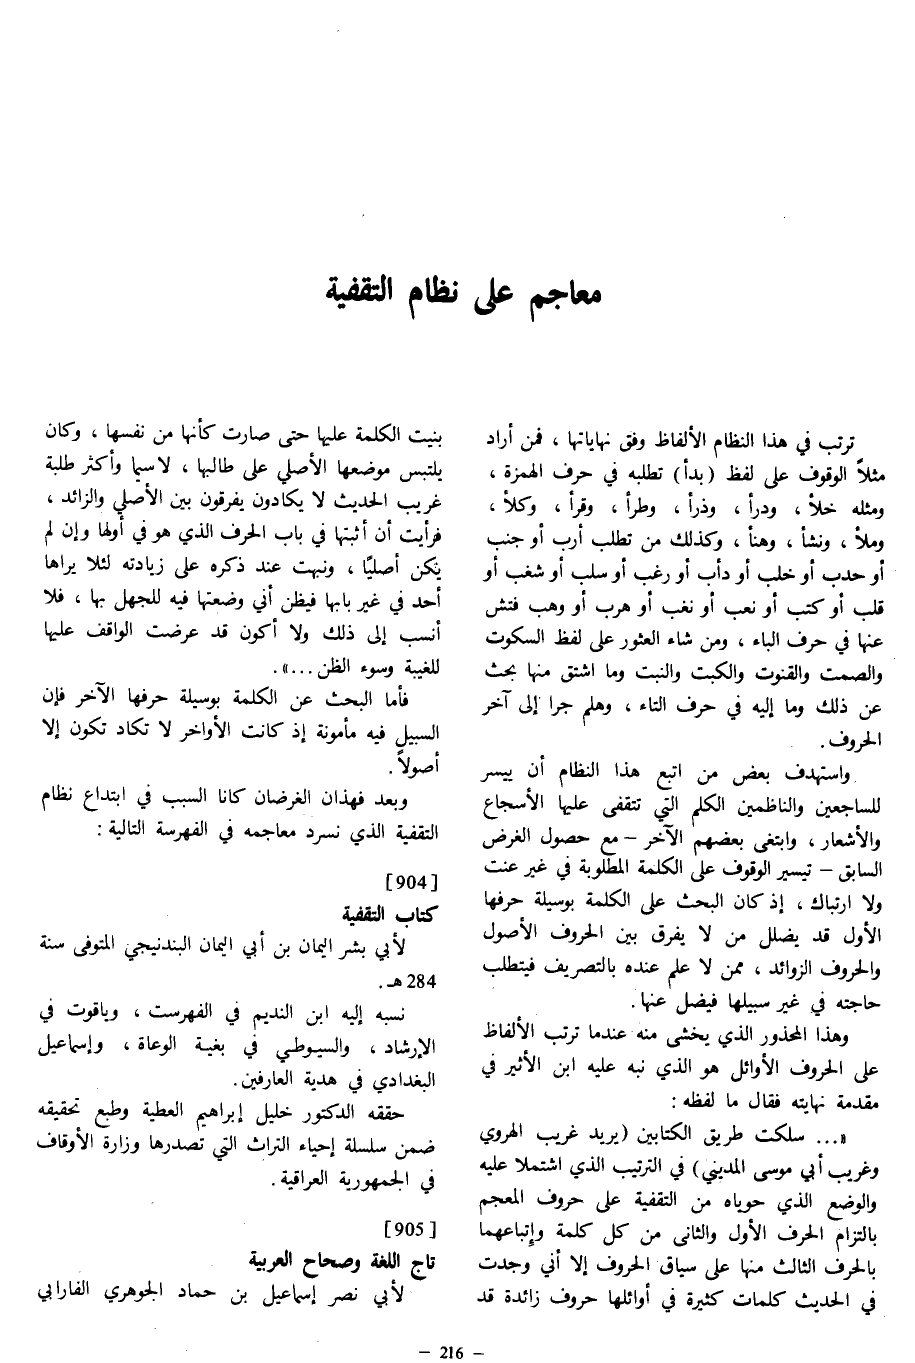 معاجم على نظام التقفية
ترتب في هذا النظام الألفاظ وفق نهاياتها ، فمن أراد
مثلاً الوقوف على لفظ (بدأ) تطلبه في حرف الهمزة ،
ومثله خلأ ، ودرأ ، وذرأ ، وطرأ ، وقرأ ، وكلأ ،
وملأ ، ونشأ ، وهنأ ، وكذلك من تطلب أرب أو جنب
أو حدب أو خلب أو دأب أو رغب أو سلب أو شغب أو
قلب أو كتب أو نعب أو نغب أو هرب أو وهب فتش
عنها في حرف الباء ، ومن شاء العثور على لفظ السكوت
والصمت والقنوت والكبت والنبت وما اشتق منها بحث
عن ذلك وما إليه في حرف التاء ، وهلم جرا إلى آخر
الحروف .
واستهدف بعض من اتبع هذا النظام أن ييسر
للساجعين والناظمين الكلم التي تتقفى عليها الأسجاع
والأشعار ، وابتغى بعضهم الآخر – مع حصول الغرض
السابق – تيسير الوقوف على الكلمة المطلوبة في غير عنت
ولا ارتباك ، إذ كان البحث على الكلمة بوسيلة حرفها
الأول قد يضلل من لا يفرق بين الحروف الأصول
والحروف الزوائد ، ممن لا علم عنده بالتصريف فيتطلب
حاجته في غير سبيلها فيضل عنها .
وهذا المحذور الذي يخشى منه عندما ترتب الألفاظ
على الحروف الأوائل هو الذي نبه عليه ابن الأثير في
مقدمة نهايته فقال ما لفظه :
«... سلكت طريق الكتابين (يريد غريب الهروي
وغريب أبي موسى المديني) في الترتيب الذي اشتملا عليه
والوضع الذي حوياه من التقفية على حروف المعجم
بالتزام الحرف الأول والثاني من كل كلمة وإتباعهما
بالحرف الثالث منها على سياق الحروف إلا أني وجدت
في الحديث كلمات كثيرة في أوائلها حروف زائدة قد
بنيت الكلمة عليها حتى صارت كأنها من نفسها ، وكان
يلتبس موضعها الأصلي على طالبها ، لا سيما وأكثر طلبة
غريب الحديث لا يكادون يفرقون بين الأصلي والزائد ،
فرأيت أن أثبتها في باب الحرف الذي هو في أولها وإن لم
يكن أصليًا ، ونبهت عند ذكره على زيادته لئلا يراها
أحد في غير بابها فيظن أني وضعتها فيه للجهل بها ، فلا
أنسب إلى ذلك ولا أكون قد عرضت الواقف عليها
للغيبة وسوء الظن ...» .
فأما البحث عن الكلمة بوسيلة حرفها الآخر فإن
السبيل فيه مأمونة إذ كانت الأواخر لا تكاد تكون إلا
أصولاً .
وبعد فهذان الغرضان كانا السبب في ابتداع نظام
التقفية الذي نسرد معاجمه في الفهرسة التالية :
[904]
كتاب التقفية
لأبي بشر اليمان بن أبي اليمان البندنيجي المتوفى سنة
284 هـ .
نسبه إليه ابن النديم في الفهرست ، وياقوت في
الإرشاد ، والسيوطي في بغية الوعاة ، وإسماعيل
البغدادي في هدية العارفين .
حققه الدكتور خليل إبراهيم العطية وطبع تحقيقه
ضمن سلسلة إحياء التراث التي تصدرها وزارة الأوقاف
في الجمهورية العراقية .
[905]
تاج اللغة وصحاح العربية
لأبي نصر إسماعيل بن حماد الجوهري الفارابي
– 216 –